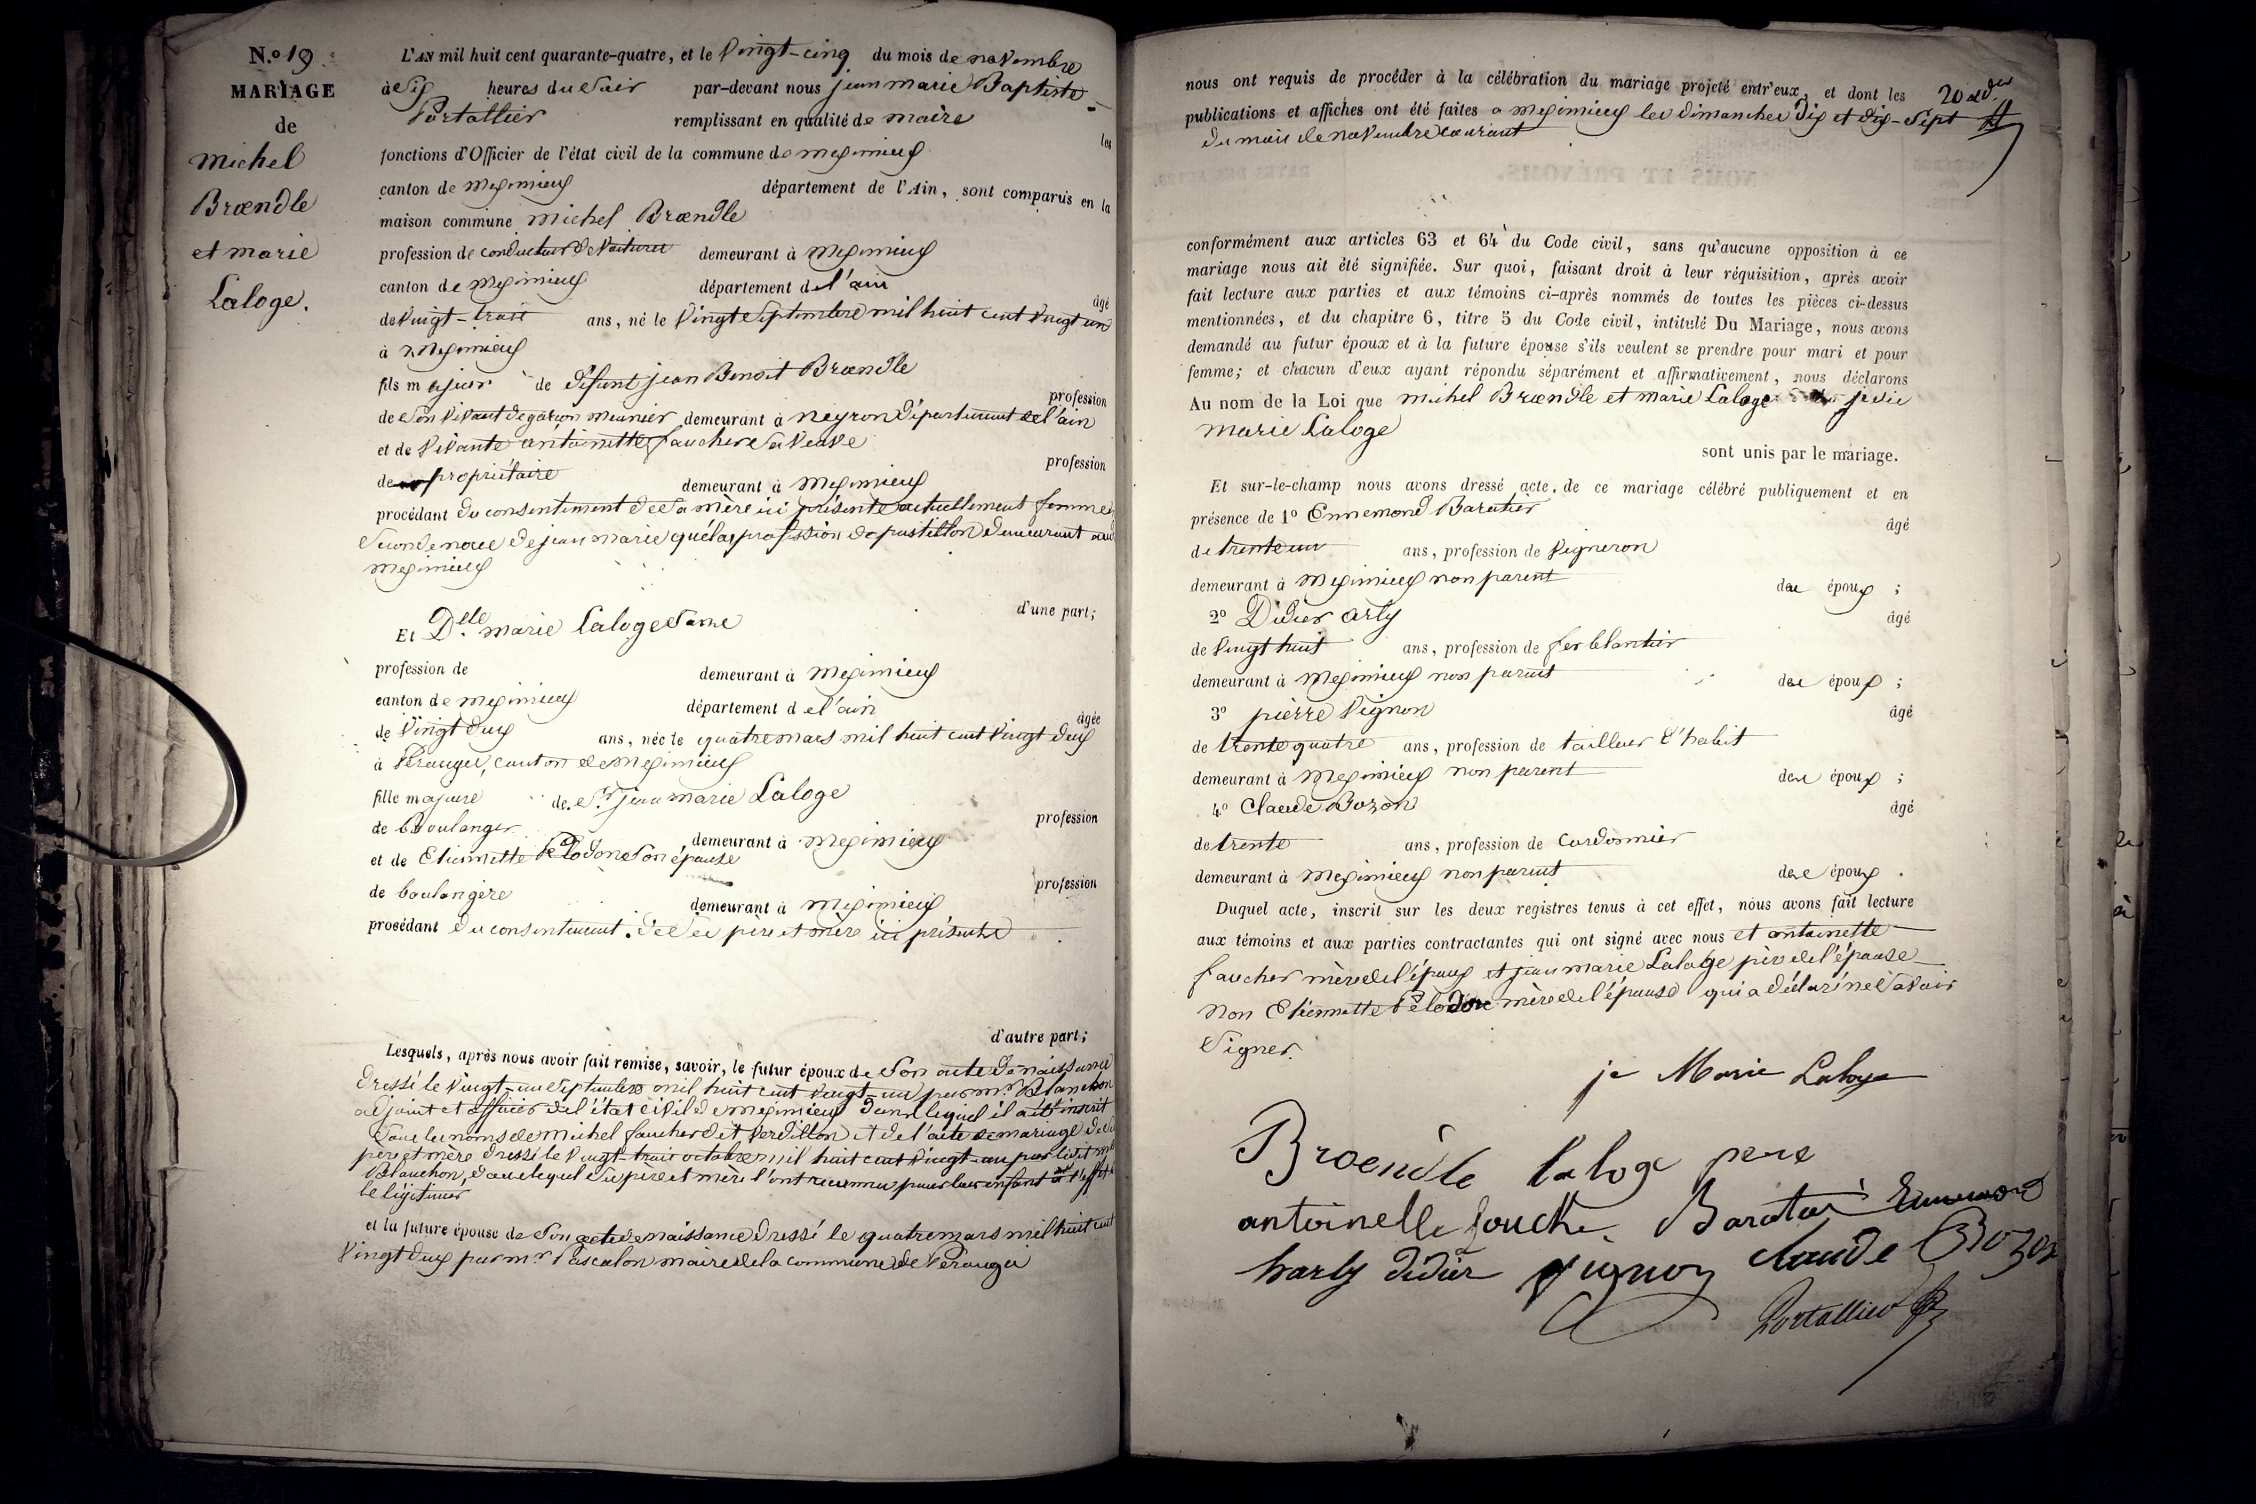 N.o 19
MARIAGE
de
michel
Brœndle
et marie
Laloge.
L'AN mil huit cent quarante-quatre, et le vingt-cinq du mois de novembre
à six heures du soir par-devant nous jean marie Baptiste
Portallier remplissant en qualité de maire les
fonctions d'Officier de l'état civil de la commune de meximieux
canton de meximieux département de l'Ain, sont comparus en la
maison commune michel Brœndle
profession de conducteur de voitures demeurant à meximieux
canton de meximieux département de l'ain âgé
de vingt-trois ans, né le vingt septembre mil huit cent vingt un
à meximieux
fils majeur de défunt jean Benoit Brœndle profession
de son vivant de garçon meunier demeurant à neyron département de l'ain
et de vivante antoinette faucher sa veuve profession
de propriétaire demeurant à meximieux
procédant du consentement de sa mère ici présente actuellement femme
seconde noce de jean marie quélas profession de postillon demeurant au
meximieux
d'une part;
Et Delle marie laloge
profession de demeurant à meximieux
canton de meximieux département de l'ain âgée
de vingt deux ans, née le quatre mars mil huit cent vingt deux
à Pérouges, canton de meximieux
fille majeure de sr jean marie Laloge profession
de Boulanger demeurant à meximieux
et de Etiennette Pélodon son épouse profession
de boulangère demeurant à meximieux
procédant du consentement de ses père et mère ici présents
d'autre part;
Lesquels, après nous avoir fait remise, savoir, le futur époux de son acte de naissance
dressé le vingt-un septembre mil huit cent vingt-un par mr Blanchon
adjoint et officier de l'état civil de meximieux dans lequel il a été inscrit
sous les noms de michel faucher dit verdillon et de l'acte de mariage de ses
père et mère dressé le vingt-trois octobre mil huit cent vingt-un par ledit mr
Blanchon, dans lequel ses père et mère l'ont reconnu pour leur enfant à l'effet de
le légitimer
et la future épouse de son acte de naissance dressé le quatre mars mil huit cent
vingt deux par mr Pascalon maire de la commune de Pérouges
nous ont requis de procéder à la célébration du mariage projeté entr'eux, et dont les
publications et affiches ont été faites à meximieux les dimanches dix et dix-sept
du mois de novembre courant
conformément aux articles 63 et 64 du Code civil, sans qu'aucune opposition à ce
mariage nous ait été signifiée. Sur quoi, faisant droit à leur réquisition, après avoir
fait lecture aux parties et aux témoins ci-après nommés de toutes les pièces ci-dessus
mentionnées, et du chapitre 6, titre 5 du Code civil, intitulé Du Mariage, nous avons
demandé au futur époux et à la future épouse s'ils veulent se prendre pour mari et pour
femme; et chacun d'eux ayant répondu séparément et affirmativement, nous déclarons
Au nom de la Loi que michel Brœndle et marie Laloge je dis
marie Laloge
sont unis par le mariage.
Et sur-le-champ nous avons dressé acte de ce mariage célébré publiquement et en
présence de 1o Ennemond Baratier âgé
de trente un ans, profession de vigneron
demeurant à meximieux non parent des époux ;
2o Didier arly âgé
de vingt huit ans, profession de ferblantier
demeurant à meximieux non parent des époux ;
3o pierre vignon âgé
de trente quatre ans, profession de tailleur d'habit
demeurant à meximieux non parent des époux ;
4o Claude Bozon âgé
de trente ans, profession de cordonnier
demeurant à meximieux non parent des époux .
Duquel acte, inscrit sur les deux registres tenus à cet effet, nous avons fait lecture
aux témoins et aux parties contractantes qui ont signé avec nous et antoinette
faucher mère de l'époux et jean marie Laloge père de l'épouse
non Etiennette Pélodon mère de l'épouse qui a déclaré ne savoir
signer.
je Marie Laloge
Broendle laloge pere
antoinelle fouche Baratier Ennemond
harly didier vignon claude Bozon
Portallier